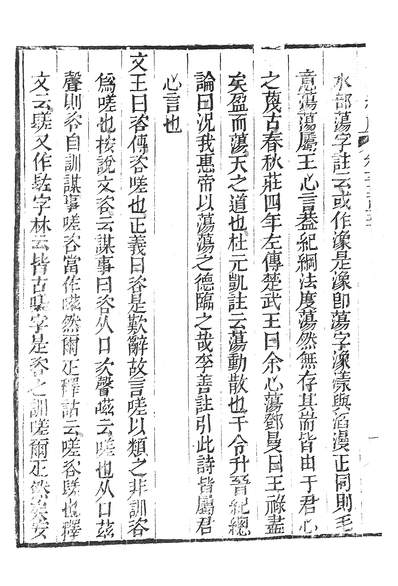 水部蕩字註云或作潒是潒卽蕩字潒瀁與滔漫正同則毛
意蕩蕩屬王心言葢紀綱法度蕩然無存其耑皆由于君心
之蔑古春秋莊四年左傳楚武王曰余心蕩鄧曼曰王祿盡
矣盈而蕩天之道也杜元凱註云蕩動散也干令升晉紀總
論曰況我惠帝以蕩蕩之德臨之哉李善註引此詩皆屬君
心言也
文王曰咨傳咨嗟也正義曰咨是歎辭故言嗟以類之非訓咨
為嗟也按說文咨云謀事曰咨从口次聲嗞云嗟也从口茲
聲則咨自訓謀事嗟咨當作嗞然爾疋釋詁云嗟咨也釋
文云又作字林云皆古嗟字是咨之訓嗟爾疋然矣安